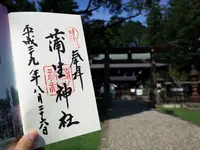 奉拝
蒲生神社
平成二十九年八月二十六日